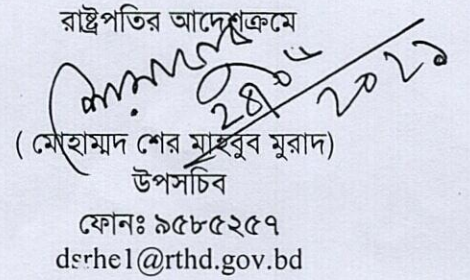 রাষ্ট্রপতির আদেশক্রমে
২০২১
( মোহাম্মদ শের মাহবুব মুরাদ)
উপসচিব
ফোনঃ ৯৫৮৫২৫৭
dsrhe1@rthd.gov.bd